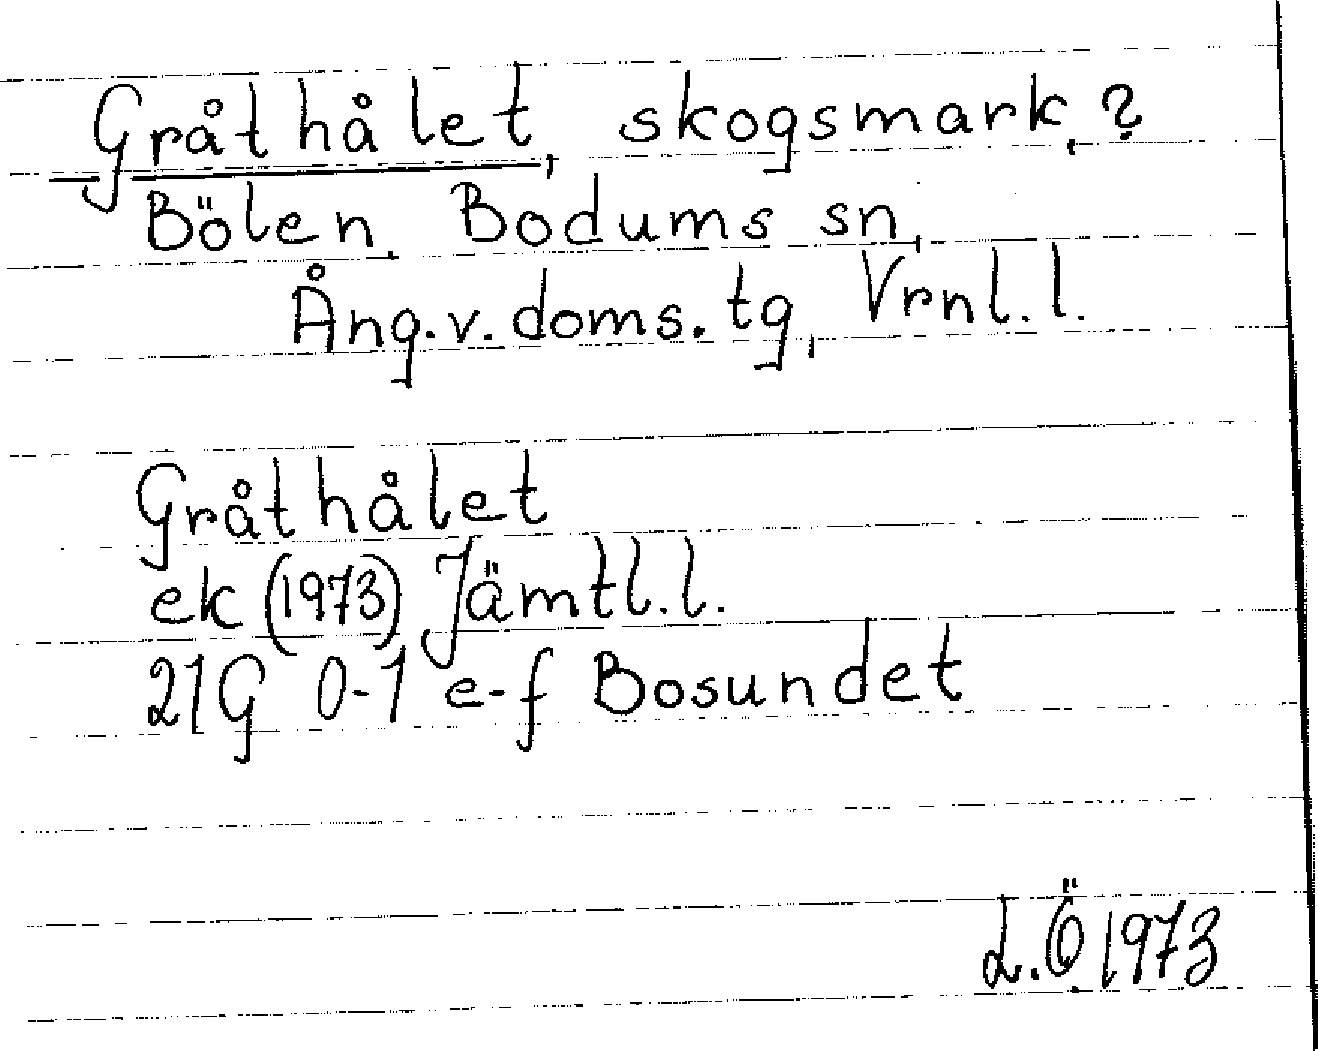 Gråthålet, skogsmark, ?
Bölen, Bodums sn,
Ång.v. doms. tg, Vrnl. l.
Gråthålet
ek (1973) Jämtl. l.
21G 0-1 e-f Bosundet
L.Ö 1973